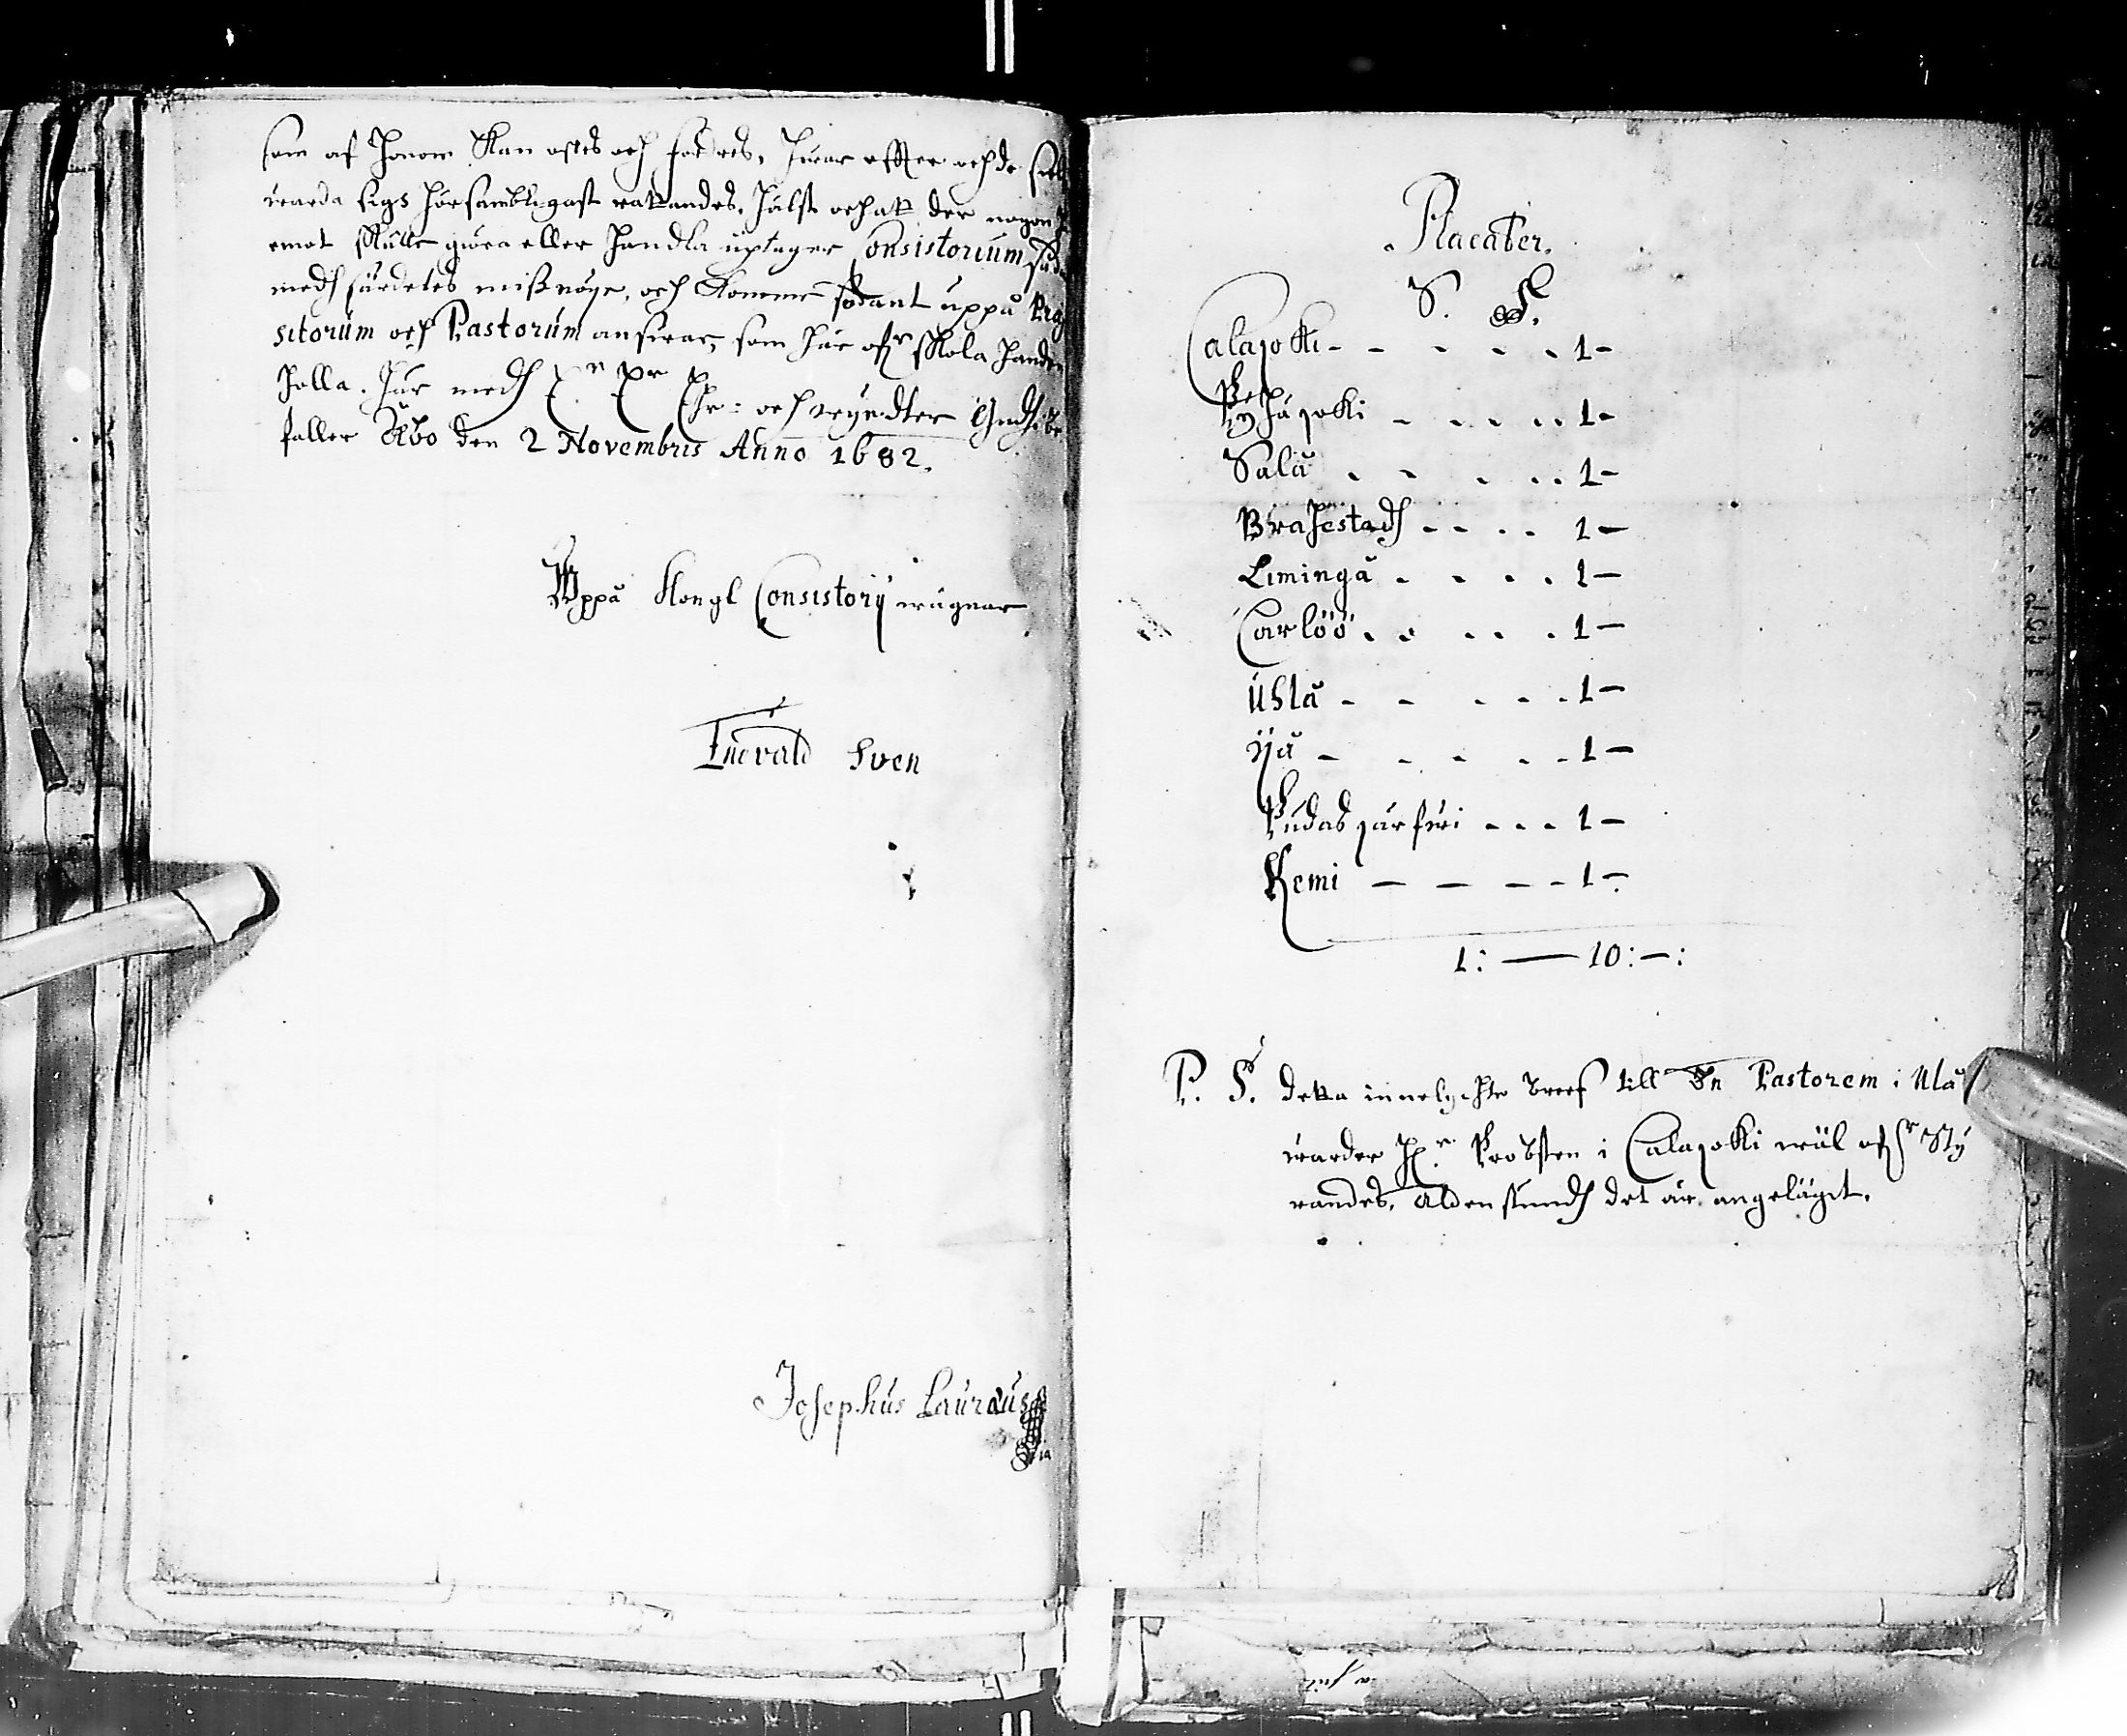 som af honom kan ästes och fordres, hwar effter och de
warda sigh hörsambligast rättandes, hälst och att der någon
emot skulle giöra eller handla uptager Consistorium
medh särdeles missnöye, och kommer sådant uppå
sitorum och Pastorum answar, som här öfr skola handen
holla. Här medh Er Er Ehr: och wyrdter Gudh be
faller Åbo den 2 Novembris Anno 1682.
Uppå Kongl Consistorij wägnar
Enevald Sven
Josephus Lauræus
Placater.
S. F.
Calajoki - - - - - 1 -
Pyhäjoki - - - - - 1 -
Salå - - - - - 1 -
Brahestadh - - - - 1 -
Limingå - - - - 1 -
Carlöö - - - - - 1 -
Uhlå - - - - - 1 -
Ijå - - - - - 1 -
Pudasjärfwi - - - 1 -
Kemi - - - - 1 -
1: — 10: —:
P. S. detta innelychte breef till Dn Pastorem i Ulå
warder Hr Probsten i Calajoki wäl öfr Sty
randes, aldenstundh det är angeläget.